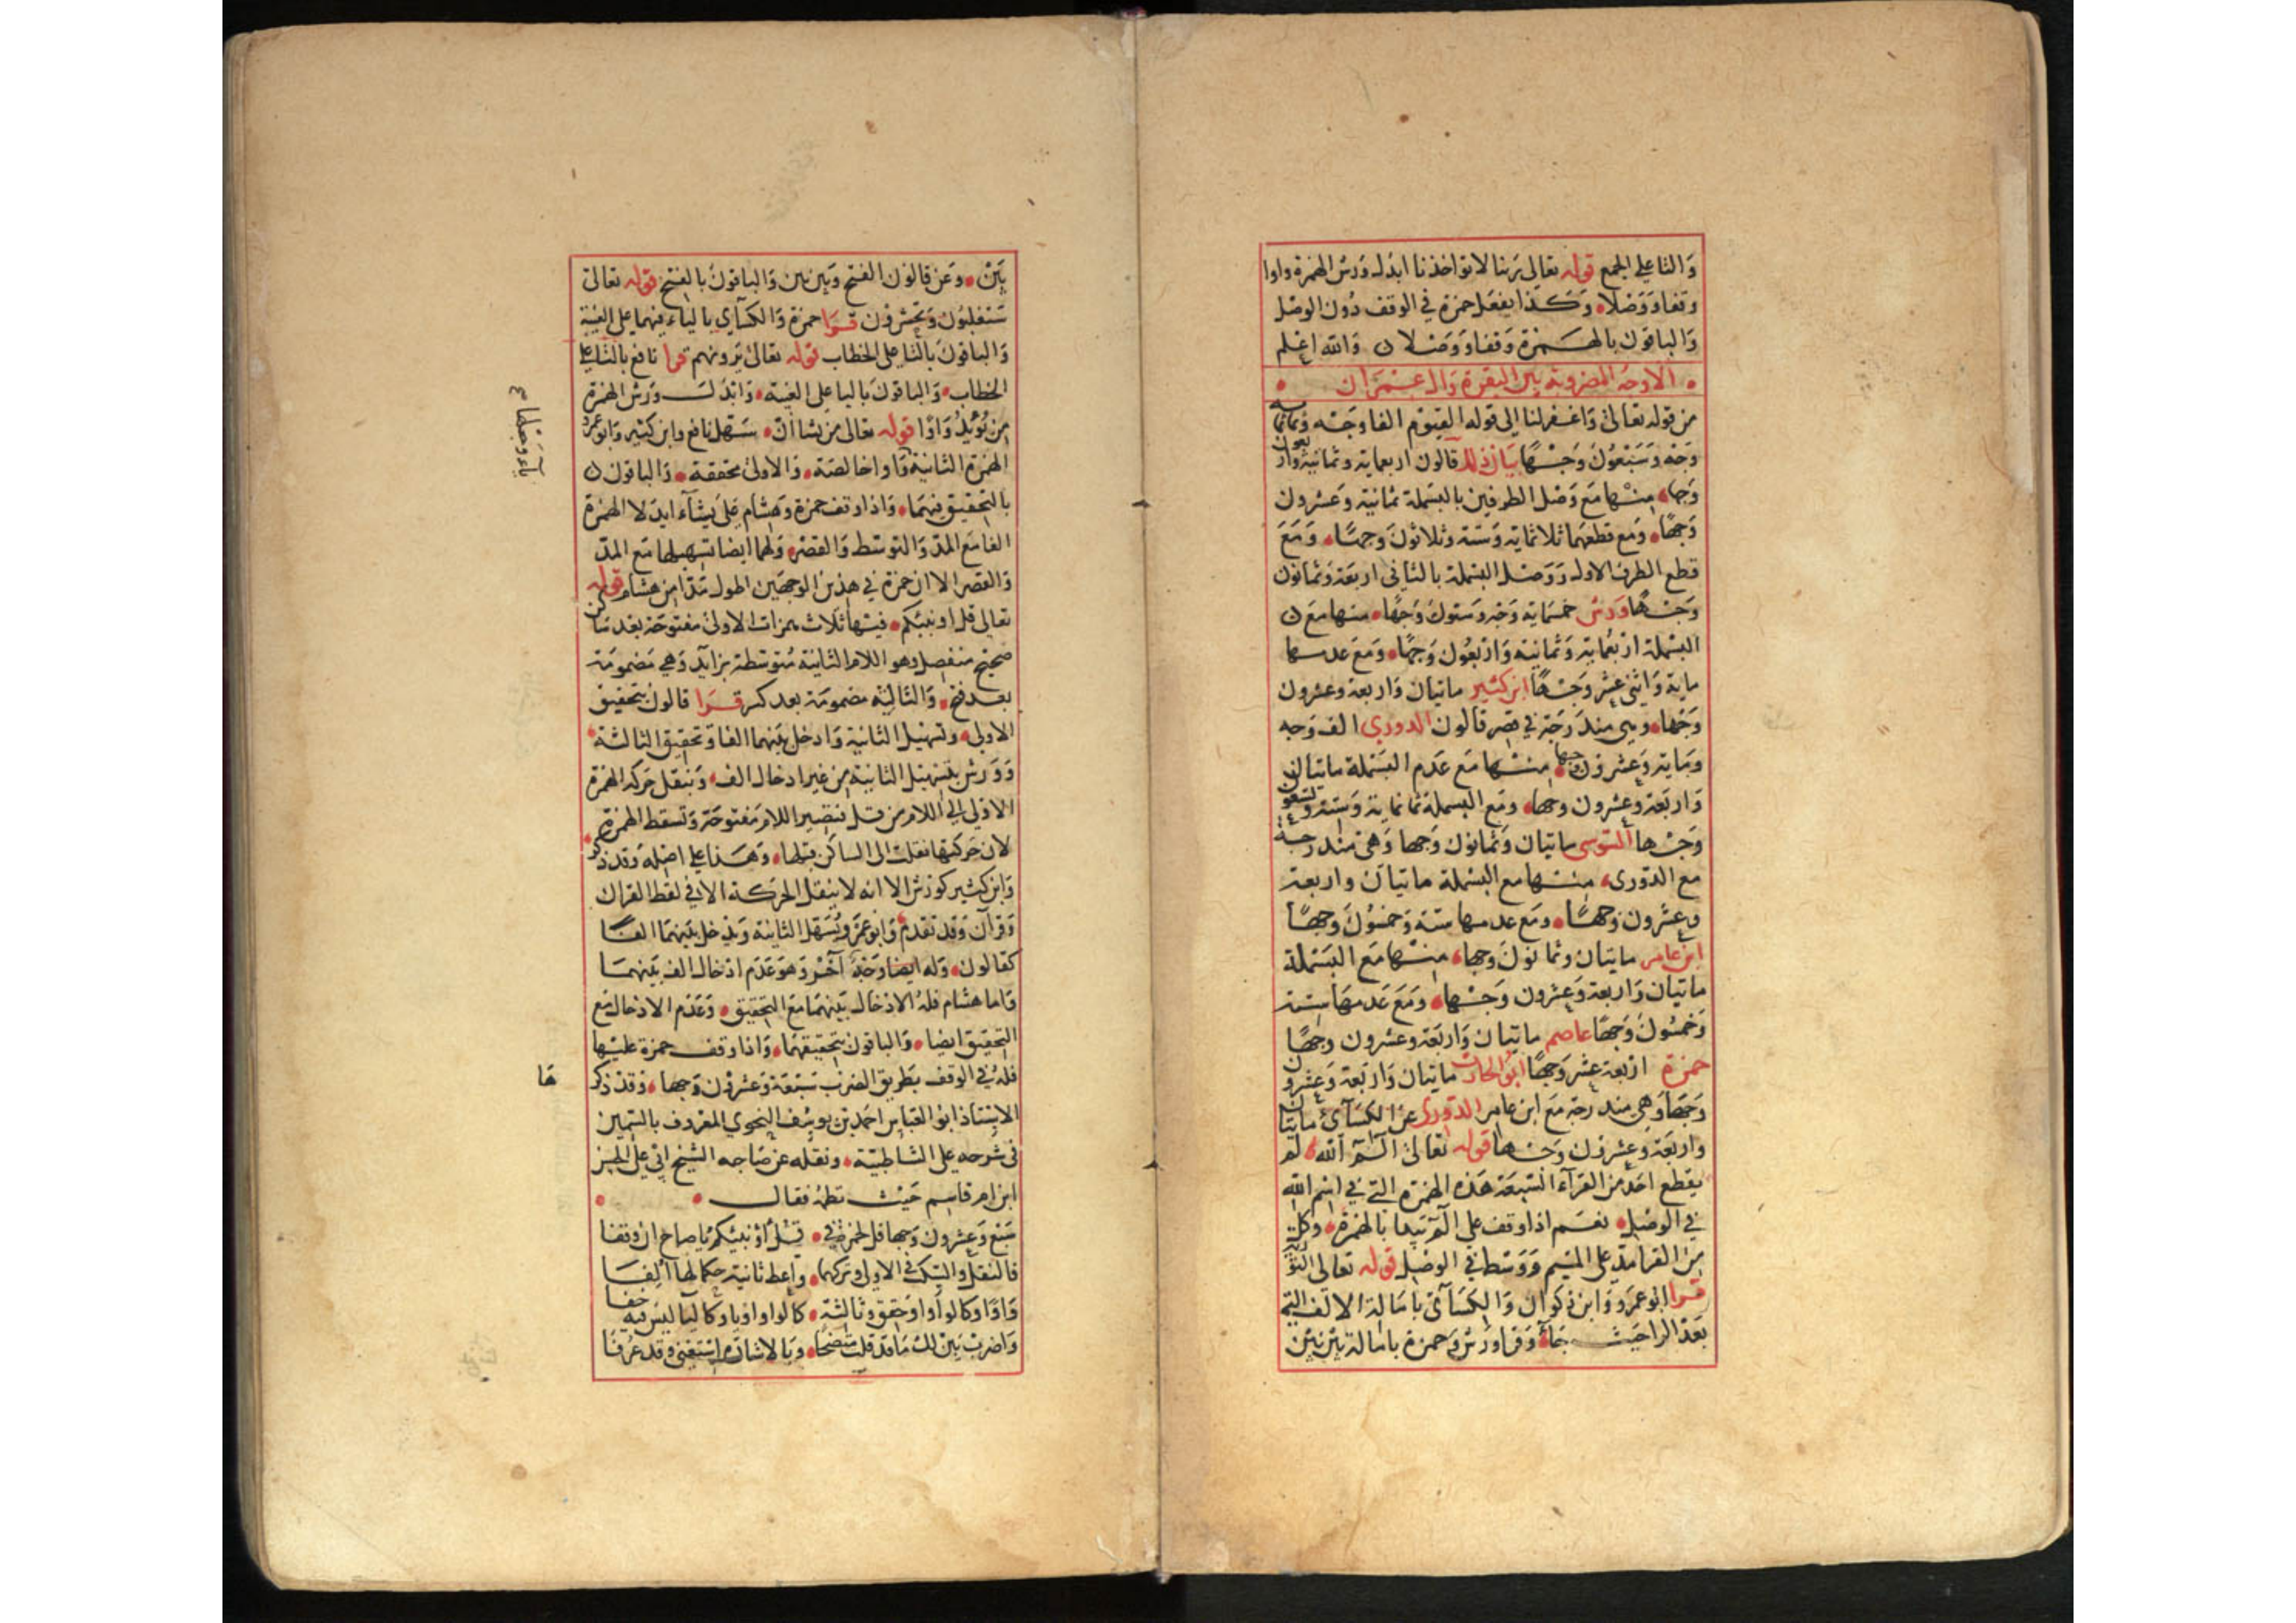 والتا على الجمع قوله تعالى ربنا لا تواخذنا ابدل ورش الهمزة واوا
وقفا ووصلا وكذا يفعل حمزة في الوقف دون الوصل
والباقون بالهمزة وقفا ووصلا والله اعلم
الاوجه المضروبة بين البقرة وال عمران
من قوله تعالى واغفر لنا الى قوله القيوم الفا وجه وثمانماية
وجه وسبعون وجها بيان ذلك قالون اربعماية وثمانية واربعون
وجها منها مع وصل الطرفين بالبسملة ثمانية وعشرون
وجها ومع قطعهما ثلاثماية وستة وثلاثون وجها ومع
قطع الطرف الاول ووصل البسملة بالثاني اربعة وثمانون
وجها ورش خمسماية وجه وستون وجها منها مع
البسملة اربعماية وثمانية واربعون وجها ومع عدمها
ماية واثني عشر وجها ابن كثير مايتان واربعة وعشرون
وجها وهي مندرجة في قصر قالون الدوري الف وجه
وماية وعشرون وجها منها مع عدم البسملة مايتان
واربعة وعشرون وجها ومع البسملة ثمانماية وستة وتسعون
وجها السوسي مايتان وثمانون وجها وهي مندرجة
مع الدوري منها مع البسملة مايتان واربعة
وعشرون وجها ومع عدمها ستة وخمسون وجها
ابن عامر مايتان وثمانون وجها منها مع البسملة
مايتان واربعة وعشرون وجها ومع عدمها ستة
وخمسون وجها عاصم مايتان واربعة وعشرون وجها
حمزة اربعة عشر وجها ابو الحارث مايتان واربعة وعشرون
وجها وهي مندرجة مع ابن عامر الدوري عن الكسائي مايتان
واربعة وعشرون وجها قوله تعالى الم الله لم
يقطع احد من القراء السبعة هذه الهمزة التي في اسم الله
في الوصل نعم اذا وقف على الم يبدا بالهمزة وكل
من القرا مد على الميم ووسط في الوصل قوله تعالى التورية
قرا ابو عمرو وابن ذكوان والكسائي بامالة الالف التي
بعد الرا حيث جاء وقرا ورش وحمزة بامالة بين بين
بين وعن قالون الفتح وبين بين والباقون بالفتح قوله تعالى
ستغلبون وتحشرون قرا حمزة والكسائي بالياء فيهما على الغيبة
والباقون بالتا على الخطاب قوله تعالى يرونهم قرا نافع بالتا على
الخطاب والباقون باليا على الغيبة وابدل ورش الهمزة
من يؤيد واوا قوله تعالى من يشا ان سهل نافع وابن كثير وابو عمرو
الهمزة الثانية واوا خالصة والاولى محققة والباقون
بالتحقيق فيهما واذا وقف حمزة وهشام على يشاء ابدلا الهمزة
الفا مع المد والتوسط والقصر ولهما ايضا تسهيلها مع المد
والقصر الا ان حمزة في هذين الوجهين اطول مدا من هشام قوله
تعالى قل اونبئكم فيها ثلاث همزات الاولى مفتوحة بعد ساكن
صحيح منفصل وهو اللام الثانية متوسطة بزايد وهي مضمومة
بعد فتح والثالثة مضمومة بعد كسر قرا قالون بتحقيق
الاولى وتسهيل الثانية وادخل بينهما الفا وتحقيق الثالثة
وورش بتسهيل الثانية من غير ادخال الف وبنقل حركة الهمزة
الاولى الى اللام من قل فتصير اللام مفتوحة وتسقط الهمزة
لان حركتها نقلت الى الساكن قبلها وهذا على اصله وقد ذكر
وابن كثير كورش الا انه لا ينقل الحركة الا في لفظ القران
وقرآن وقد تقدم وابو عمرو يسهل الثانية ويدخل بينهما الفا
كقالون وله ايضا وجه آخر وهو عدم ادخال الف بينهما
واما هشام فله الادخال بينهما مع التحقيق وعدم الادخال مع
التحقيق ايضا والباقون بتحقيقهما واذا وقف حمزة عليها
فله في الوقف بطريق الضرب سبعة وعشرون وجها وقد ذكر
الاستاذ ابو العباس احمد بن يوسف النحوي المعروف بالسمين
في شرحه على الشاطبية ونقله عن صاحبه الشيخ ابي علي الحسن
ابن ام قاسم حيث نظمه فقال
سبع وعشرون وجها قل لحمزة في قل أؤنبئكم يا صاح ان وقفا
فالنقل والسكت في الاولى وتركهما واعط ثانية حكما لها الفا
واوا وكالواو او حقق وثالثة كالواو او يا وكاليا ليس فيه خفا
واضرب يبين لك ما قد قلت متضحا وبالاشارة استغنى وقد عرفا
ها